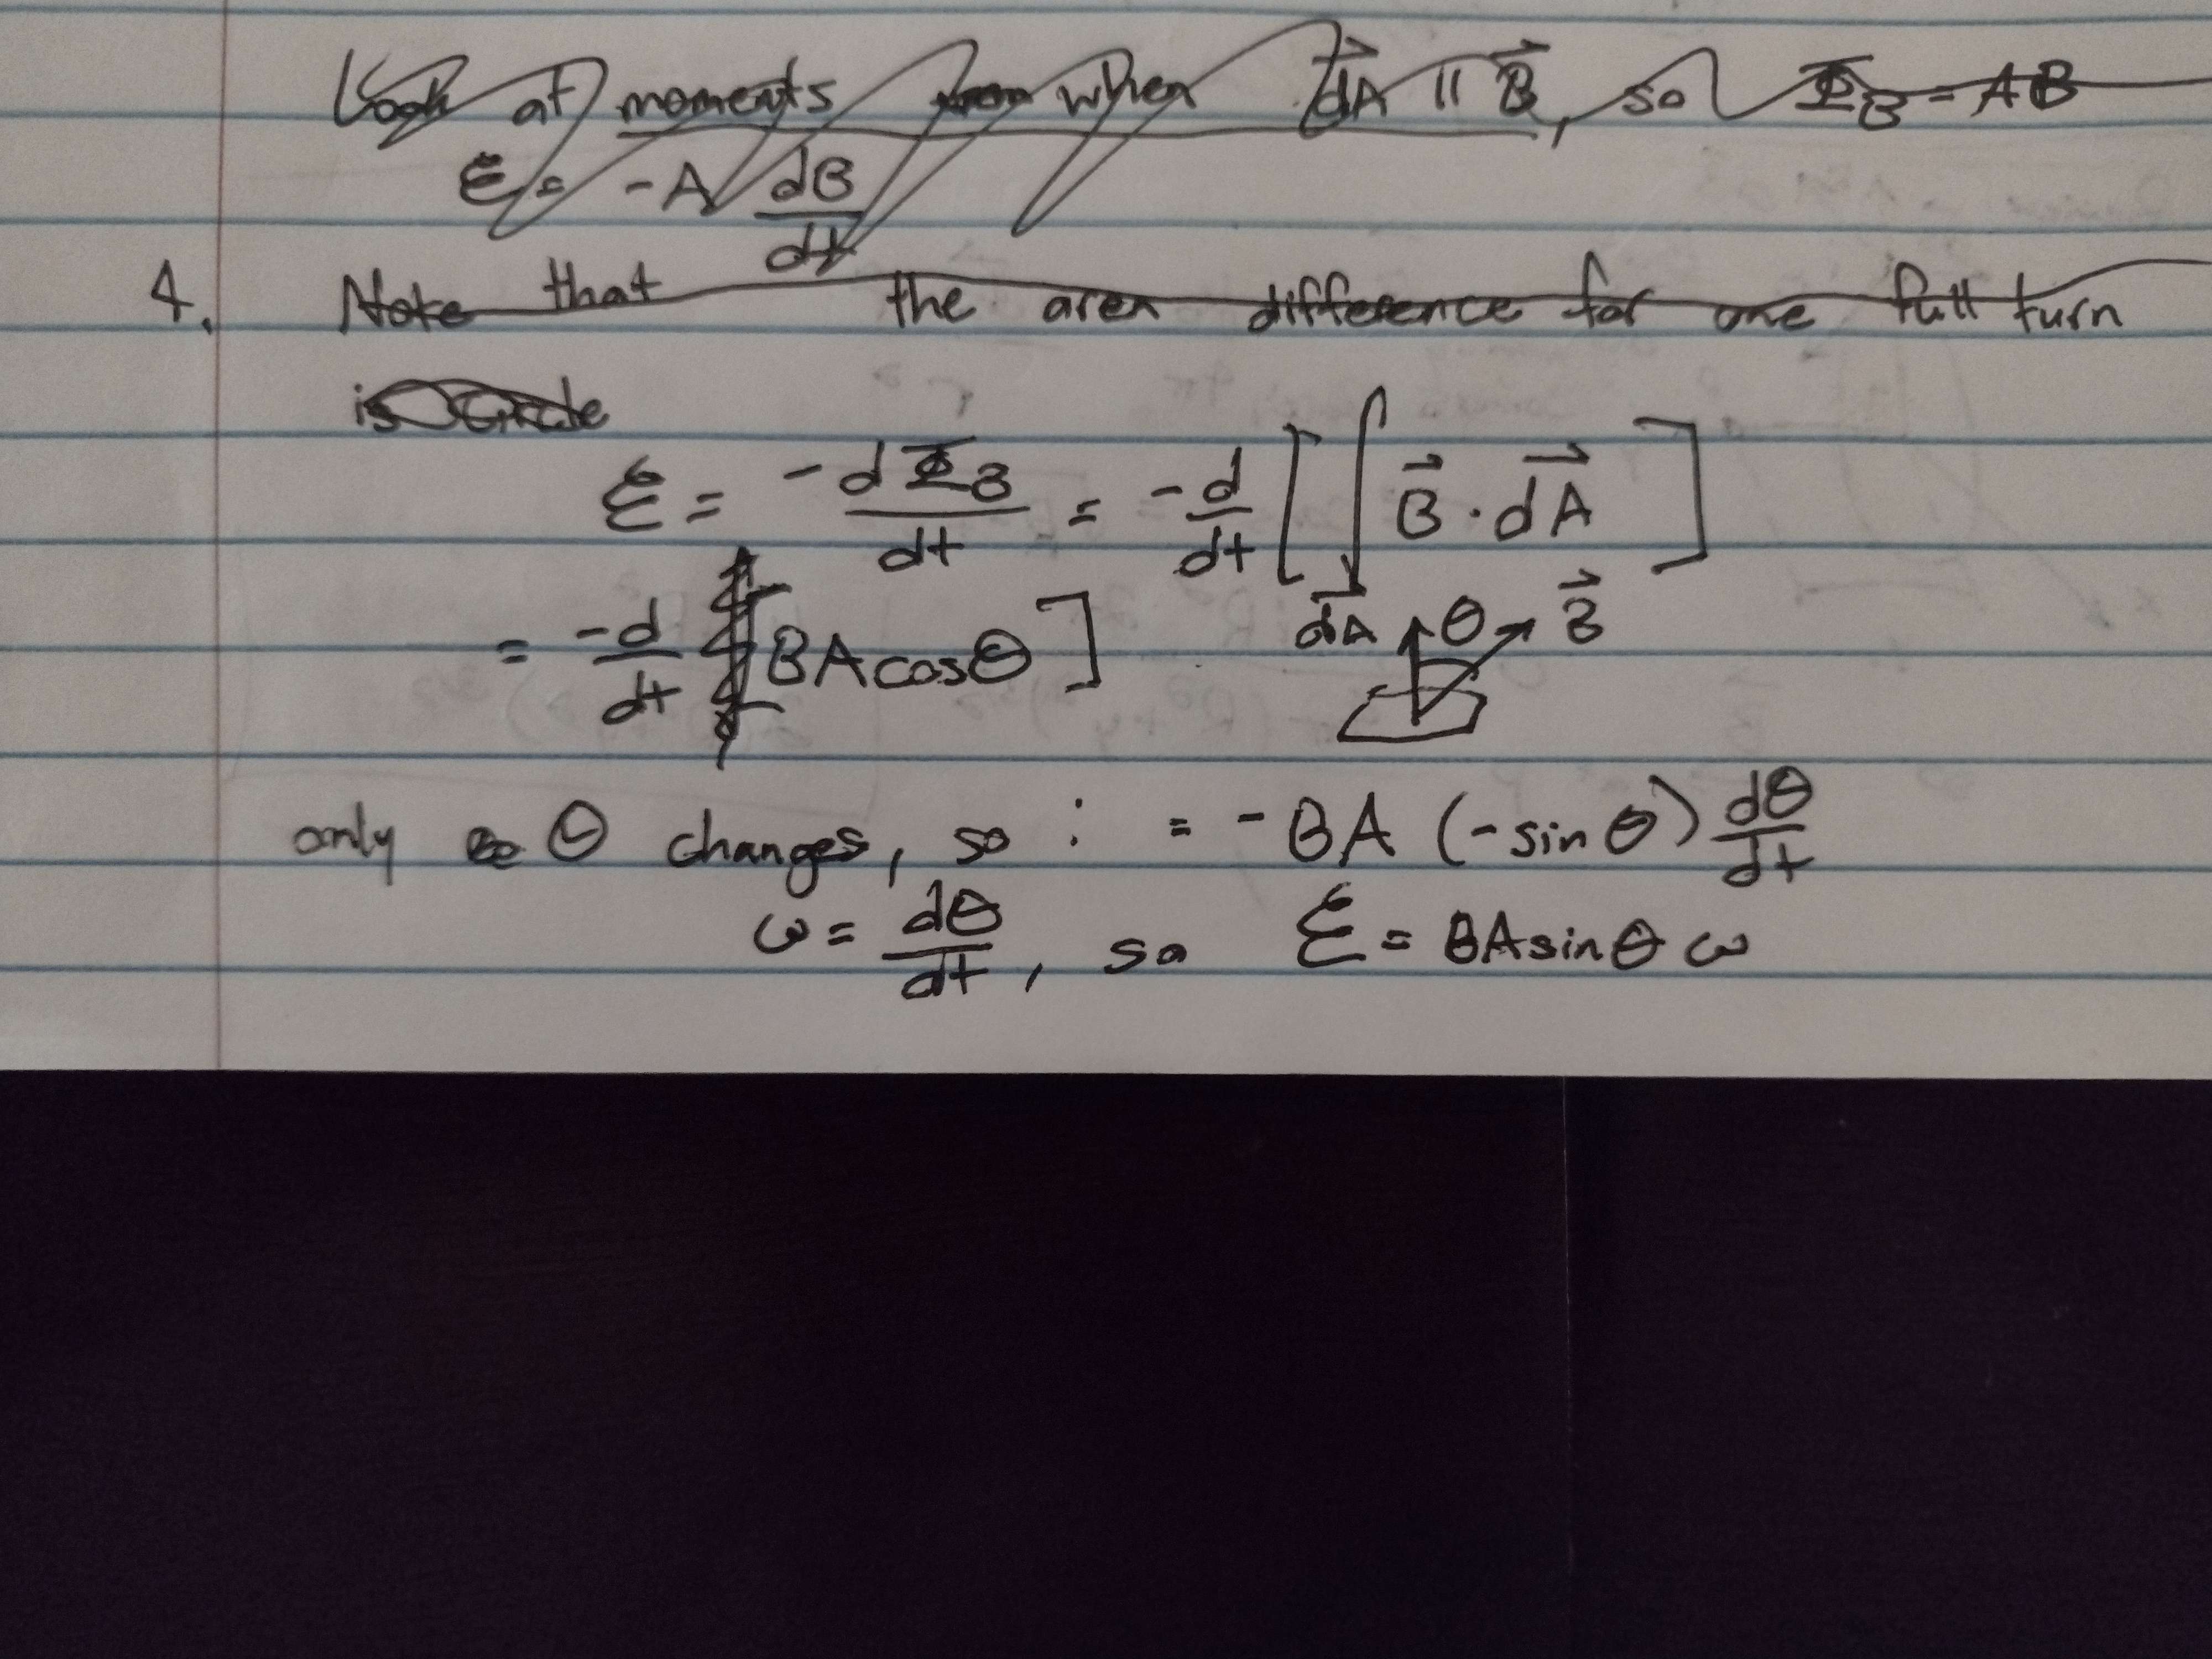 Look at moments when dA⃗ || B⃗, so Φ_B = AB
ℰ = -A dB/dt
4. Note that the area difference for one full turn
is
ℰ = -dΦ_B/dt = -d/dt [∫ B⃗ · dA⃗]
= -d/dt [BA cosθ]
dA⃗ θ B⃗
only θ changes, so : = -BA (-sin θ) dθ/dt
ω = dθ/dt, so ℰ = BA sin θ ω